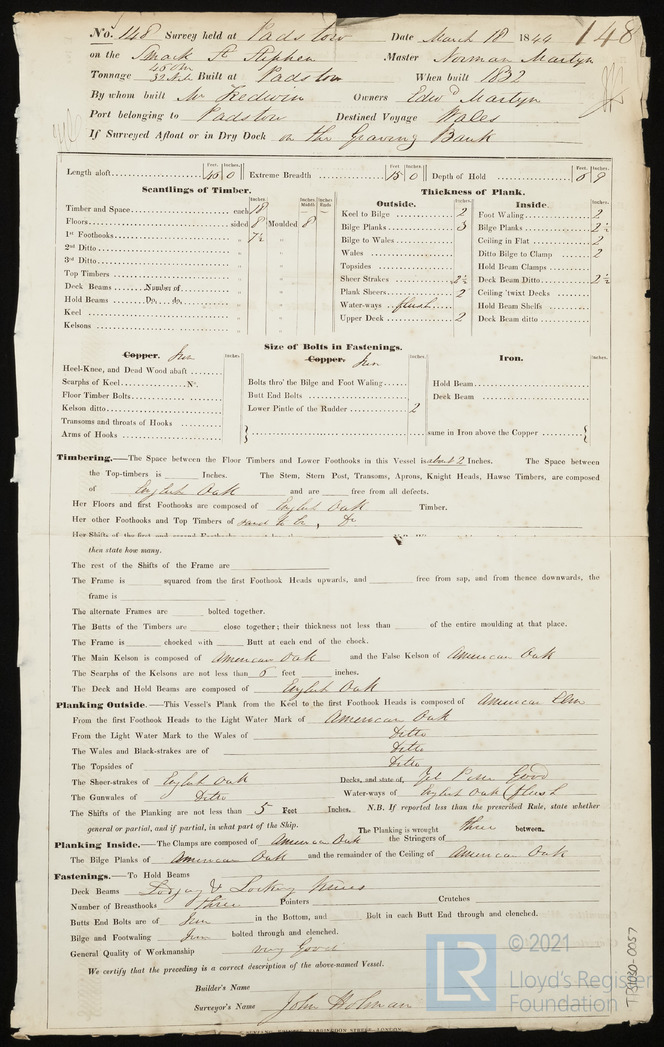 No. 148 Survey held at Padstow Date March 18 1844 148
on the Smack St Stephen Master Norman Martyn
Tonnage 32 Built at Padstow When built 1832
By whom built Mr Owners Edwd Martyn
Port belonging to Padstow Destined Voyage Wales
If Surveyed Afloat or in Dry Dock on the Graving Bank
Length aloft 0 Extreme Breadth 15 0 Depth of Hold 9
Feet. Inches. Feet. Inches. Feet. Inches.
Scantlings of Timber.
Timber and Space each 18
Floors sided 8 Moulded 8
1st Foothooks 7½
2nd Ditto
3rd Ditto
Top Timbers
Deck Beams Number of
Hold Beams Do. do.
Keel
Kelsons
Thickness of Plank.
Outside.
Keel to Bilge 2
Bilge Planks 3
Bilge to Wales
Wales
Topsides
Sheer Strakes 2½
Plank Sheers 2
Water-ways flush
Upper Deck 2
Inside.
Foot Waling 2
Bilge Planks 2½
Ceiling in Flat 2
Ditto Bilge to Clamp 2
Hold Beam Clamps
Deck Beam Ditto 2½
Ceiling 'twixt Decks
Hold Beam Shelfs
Deck Beam ditto
Size of Bolts in Fastenings.
Copper. Iron
Heel-Knee, and Dead Wood abaft
Scarphs of Keel No.
Floor Timber Bolts
Kelson ditto
Transoms and throats of Hooks
Arms of Hooks
Copper. Iron
Bolts thro' the Bilge and Foot Waling
Butt End Bolts
Lower Pintle of the Rudder 2
Iron.
Hold Beam
Deck Beam
same in Iron above the Copper
Timbering.—The Space between the Floor Timbers and Lower Foothooks in this Vessel is about 2 Inches. The Space between
the Top-timbers is Inches. The Stem, Stern Post, Transoms, Aprons, Knight Heads, Hawse Timbers, are composed
of English Oak and are free from all defects.
Her Floors and first Foothooks are composed of English Oak Timber.
Her other Foothooks and Top Timbers of
Her Shifts of the first and second Foothooks
then state how many.
The rest of the Shifts of the Frame are
The Frame is squared from the first Foothook Heads upwards, and free from sap, and from thence downwards, the
frame is
The alternate Frames are bolted together.
The Butts of the Timbers are close together; their thickness not less than of the entire moulding at that place.
The Frame is chocked with Butt at each end of the chock.
The Main Kelson is composed of American Oak and the False Kelson of American Oak
The Scarphs of the Kelsons are not less than 6 feet inches.
The Deck and Hold Beams are composed of English Oak
Planking Outside.—This Vessel's Plank from the Keel to the first Foothook Heads is composed of American Elm
From the first Foothook Heads to the Light Water Mark of American Oak
From the Light Water Mark to the Wales of Ditto
The Wales and Black-strakes are of Ditto
The Topsides of Ditto
The Sheer-strakes of English Oak Decks, and state of, Yel Pine Good
The Gunwales of Ditto Water-ways of English Oak (flush
The Shifts of the Planking are not less than 5 Feet Inches. N.B. If reported less than the prescribed Rule, state whether
general or partial, and if partial, in what part of the Ship. The Planking is wrought three between.
Planking Inside.—The Clamps are composed of American Oak the Stringers of
The Bilge Planks of American Oak and the remainder of the Ceiling of American Oak
Fastenings.—To Hold Beams
Deck Beams Lodging & Locking Knees
Number of Breasthooks three Pointers Crutches
Butts End Bolts are of Iron in the Bottom, and Bolt in each Butt End through and clenched.
Bilge and Footwaling Iron bolted through and clenched.
General Quality of Workmanship very Good
We certify that the preceding is a correct description of the above-named Vessel.
Builder's Name
Surveyor's Name John Holman
LR © 2021
Lloyd's Register
Foundation